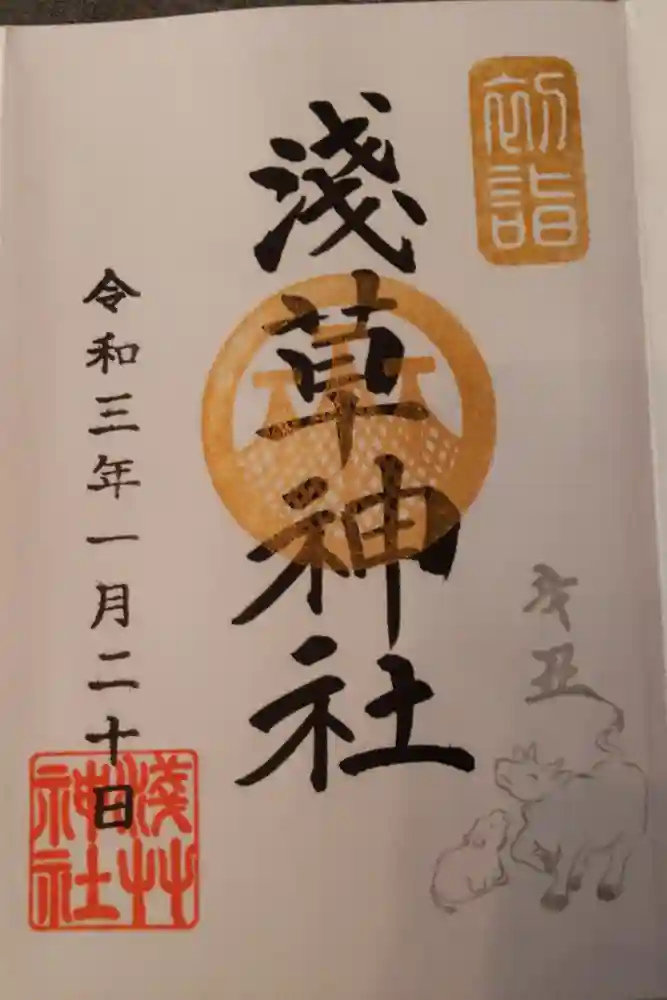 初詣
淺草神社
辛丑
令和三年一月二十日
淺草
神社